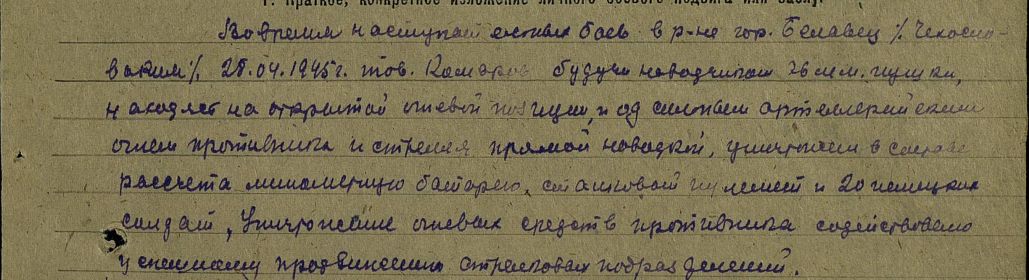 1. Краткое, конкретное изложение личного боевого подвига или заслуг
Во время наступательных боев в р-не гор. Белавец /. Чехосло-
вакии/. 28.04.1945г. тов. Комаров будучи наводчиком 76 мм. пушки,
находясь на открытой огневой позиции, под сильным артиллерийским
огнем противника и стреляя прямой наводкой, уничтожил в составе
рассчета минометную батарею, станковый пулемет и 20 немецких
солдат, Уничтожение огневых средств противника содействовало
успешному продвижению стрелковых подразделений.